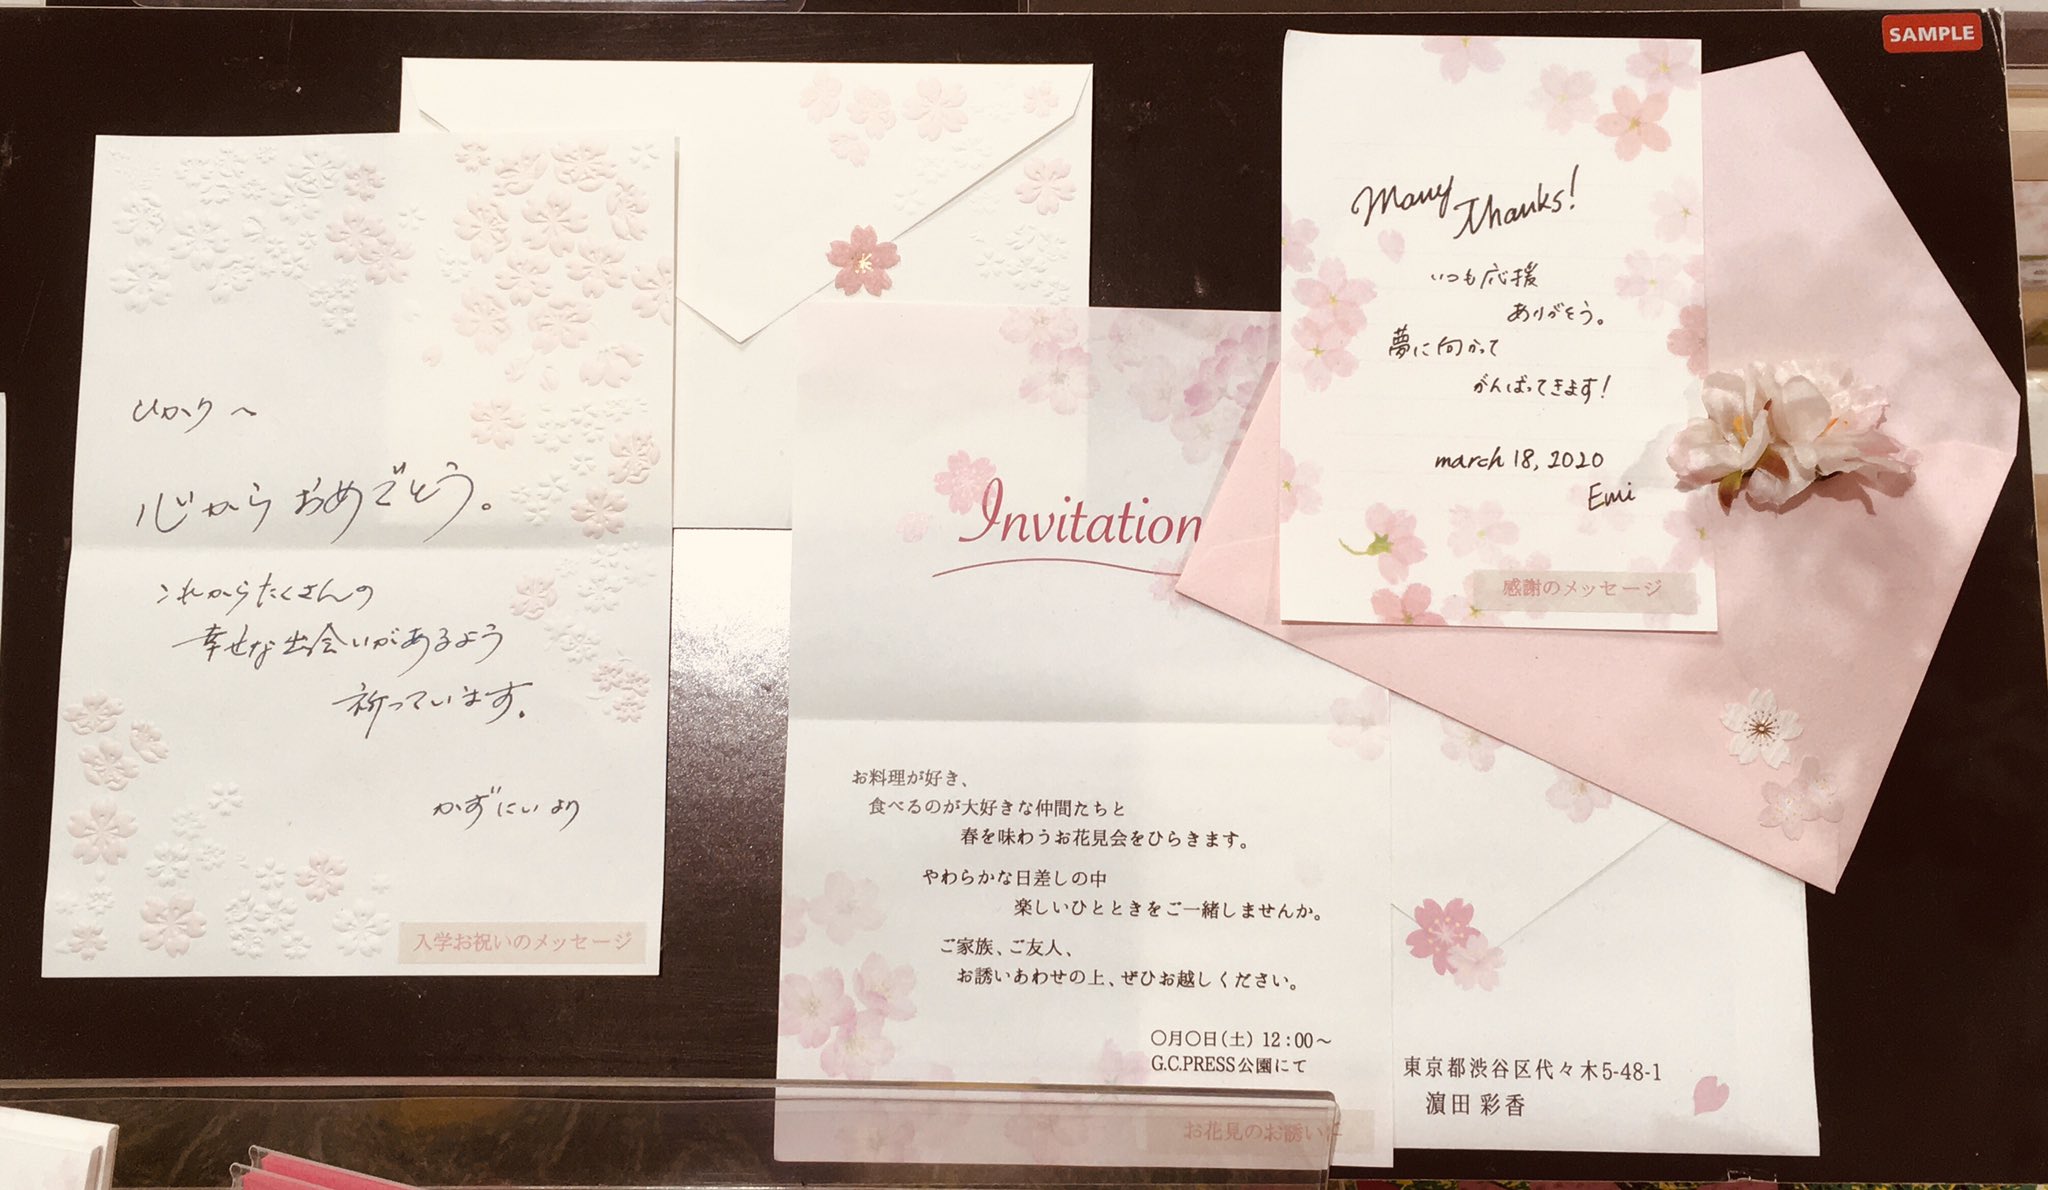 SAMPLE
ひかりへ
心からおめでとう。
これからたくさんの
幸せな出会いがあるよう
祈っています。
かずにいより
入学お祝いのメッセージ
Invitation
お料理が好き、
食べるのが大好きな仲間たちと
春を味わうお花見会をひらきます。
やわらかな日差しの中
楽しいひとときをご一緒しませんか。
ご家族、ご友人、
お誘いあわせの上、ぜひお越しください。
〇月〇日(土) 12:00～
G.C.PRESS公園にて
お花見のお誘いに
Many
Thanks!
いつも応援
ありがそう。
夢に向かって
がんばってきます!
march 18, 2020
Emi
感謝のメッセージ
東京都渋谷区代々木5-48-1
濵田 彩香